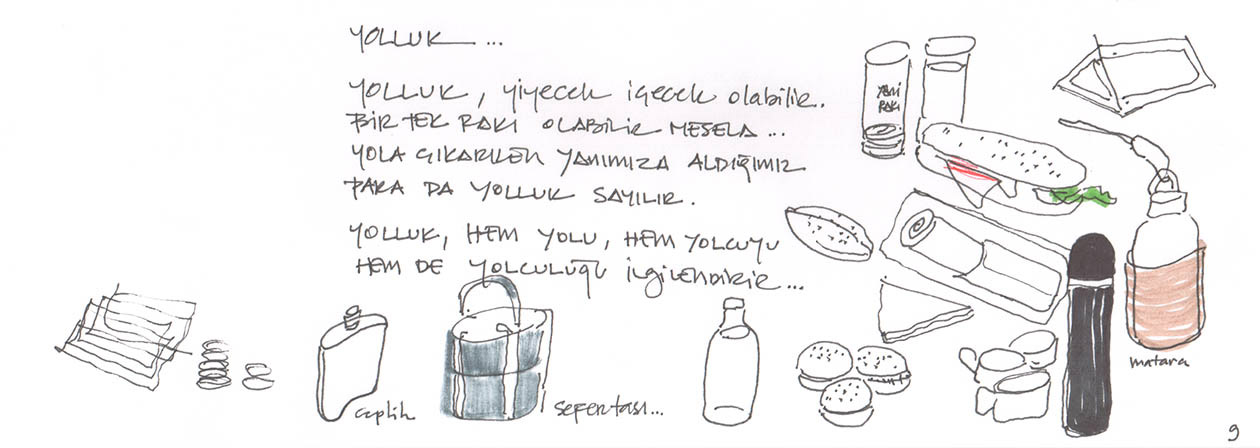 YOLLUK ...
YOLLUK, yiyecek içecek olabilir.
BİR TEK RAKI OLABİLİR MESELA ...
YOLA ÇIKARKEN YANIMIZA ALDIĞIMIZ
PARA DA YOLLUK SAYILIR.
YOLLUK, HEM YOLU, HEM YOLCUYU
HEM DE YOLCULUĞU İLGİLENDİRİR ...
YENİ
RAKI
matara
ceplik
sefertası...
9